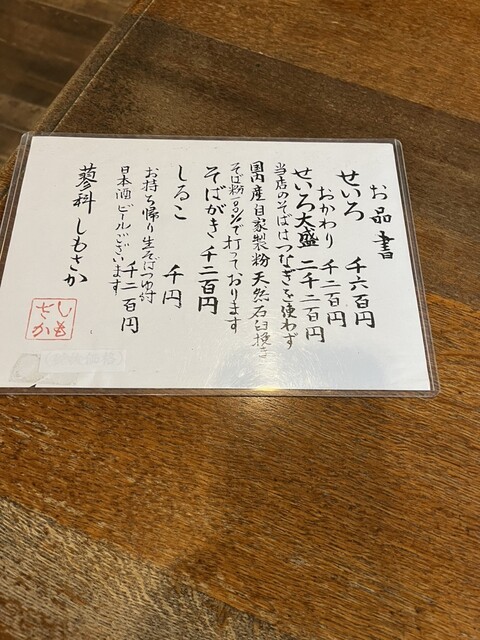 お品書
せいろ 千六百円
おかわり 千二百円
せいろ大盛 二千二百円
当店のそばはつなぎを使わず
国内産自家製粉天然石臼挽き
そば粉100%で打っております
そばがき 千二百円
しるこ 千円
お持ち帰り生そばつゆ付 千二百円
日本酒ビールございます
蓼科 しもさか
しもさか